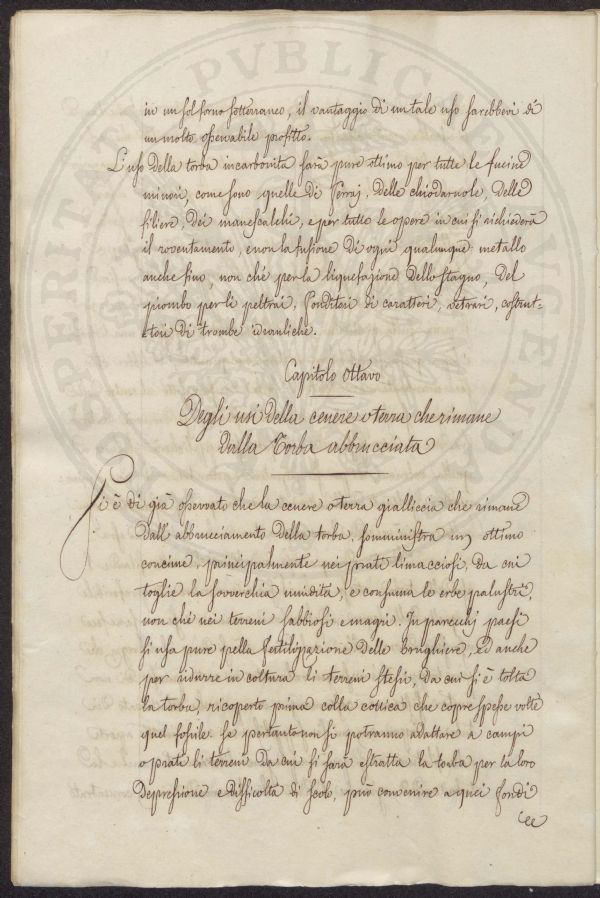 in un sol forno sotterraneo, il vantaggio di un tale uso sarebbevi di
un molto osservabile profitto.
L'uso della torba incarbonita sarà pure ottimo per tutte le fucine
minori, come sono quelle di Ferraj, delle chiodarnole, delle
filiere, dei manescalchi, e per tutte le opere in cui si richiederà
il roventamento, e non la fusione di ogni qualunque metallo
anche fino, non ché per la liquefazione dello stagno, del
piombo per li peltrai, fonditori di caratteri, vetrari, costrut-
tori di trombe idrauliche.
Capitolo ottavo
Degli usi della cenere o terra che rimane
dalla Torba abbrucciata
Si è di già osservato che la cenere o terra gialliccia che rimane
dall'abbrucciamento della torba, somministra un ottimo
concime, principalmente nei prati limacciosi, da cui
toglie la soverchia umidità, e consuma le erbe palustri,
non ché nei terreni sabbiosi e magri. In parecchj paesi
si usa pure pella fertilizzazione delle brughiere, ed anche
per ridurre in coltura li terreni stessi, da cui si è tolta
la torba, ricoperto prima colla cottica che copre spesse volte
quel fossile. Se pertanto non si potranno adattare a campi
o prato li terreni da cui si sarà estratta la torba per la loro
depressione e difficoltà di scolo, può convenire a quei fondi